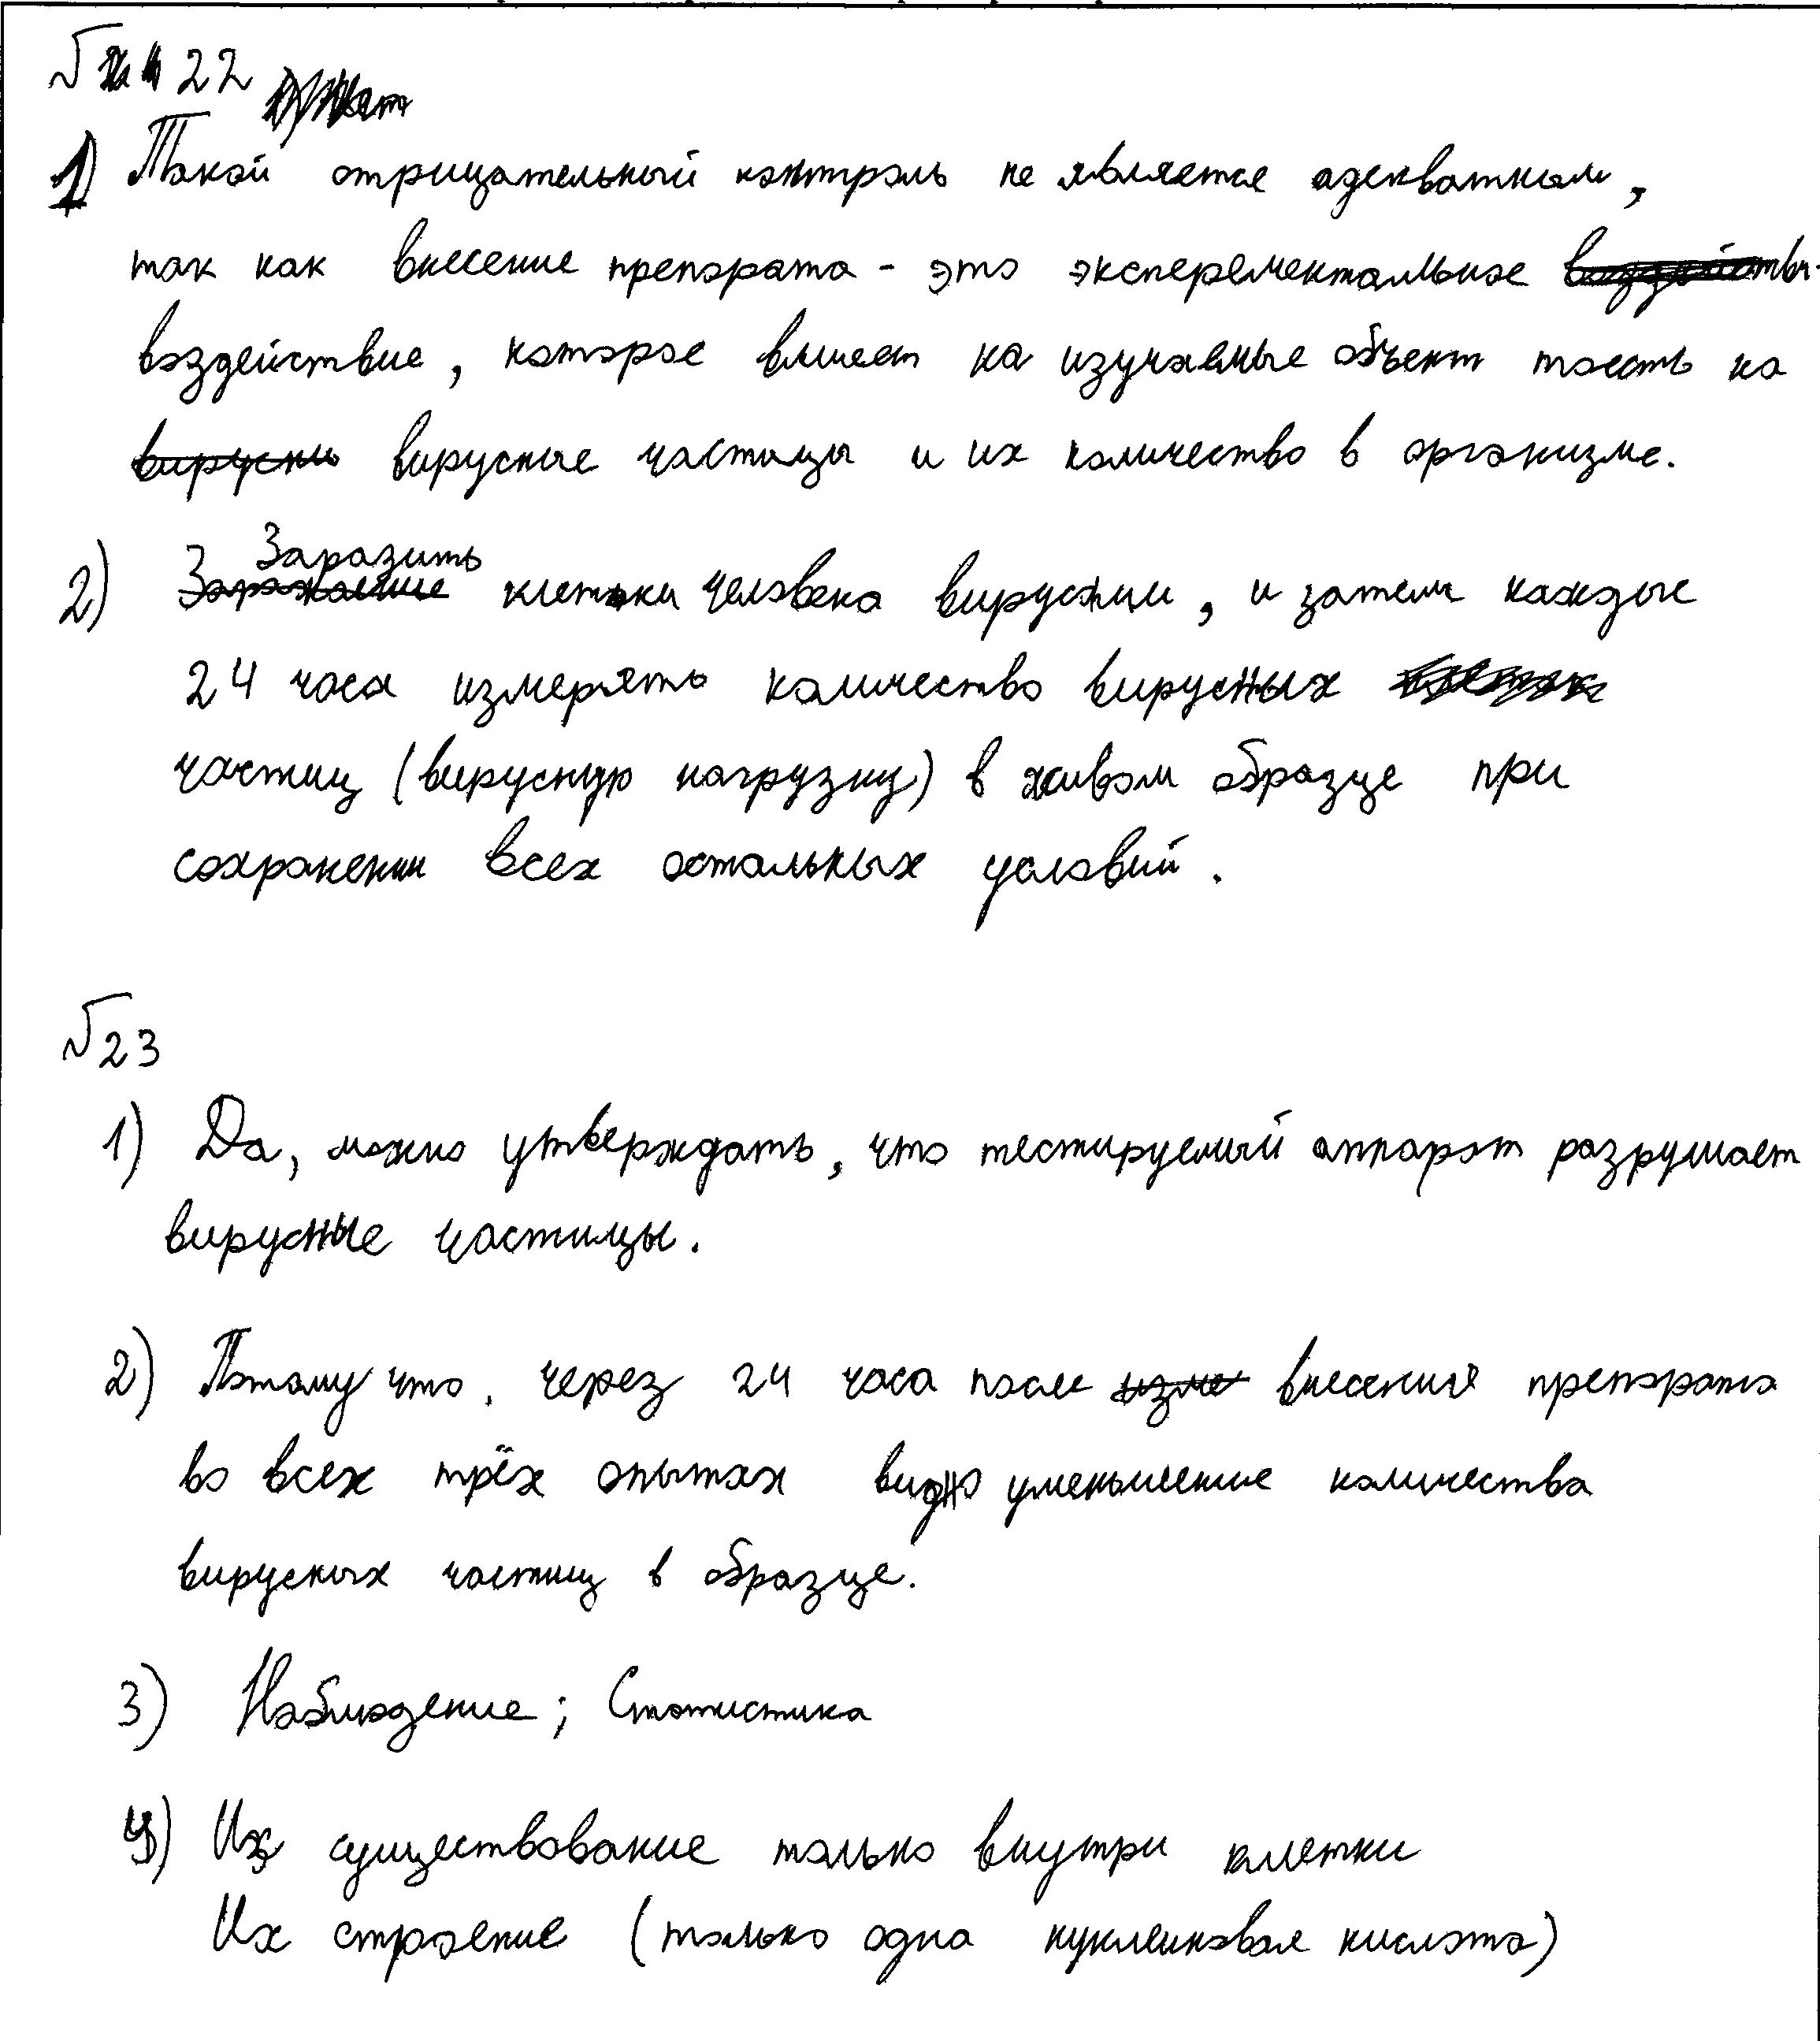 № 22
1) Такой отрицательный контроль не является адекватным,
так как внесение препарата - это эксперементальное
воздействие, которое влияет на изучаемые объект тоесть на
вирусные частицы и их количество в организме.
2) Заразить клетки человека вирусами, и затем каждые
24 часа измерять количество вирусных
частиц (вирусную нагрузку) в живом образце при
сохранении всех остальных условий.
№23
1) Да, можно утверждать, что тестируемый аппарат разрушает
вирусные частицы.
2) Потому что. через 24 часа после внесения препарата
во всех трёх опытах видно уменьшение количества
вирусных частиц в образце.
3) Наблюдение; Статистика
4) Их существование только внутри клетки
Их строение (только одна нуклеиновая кислота)